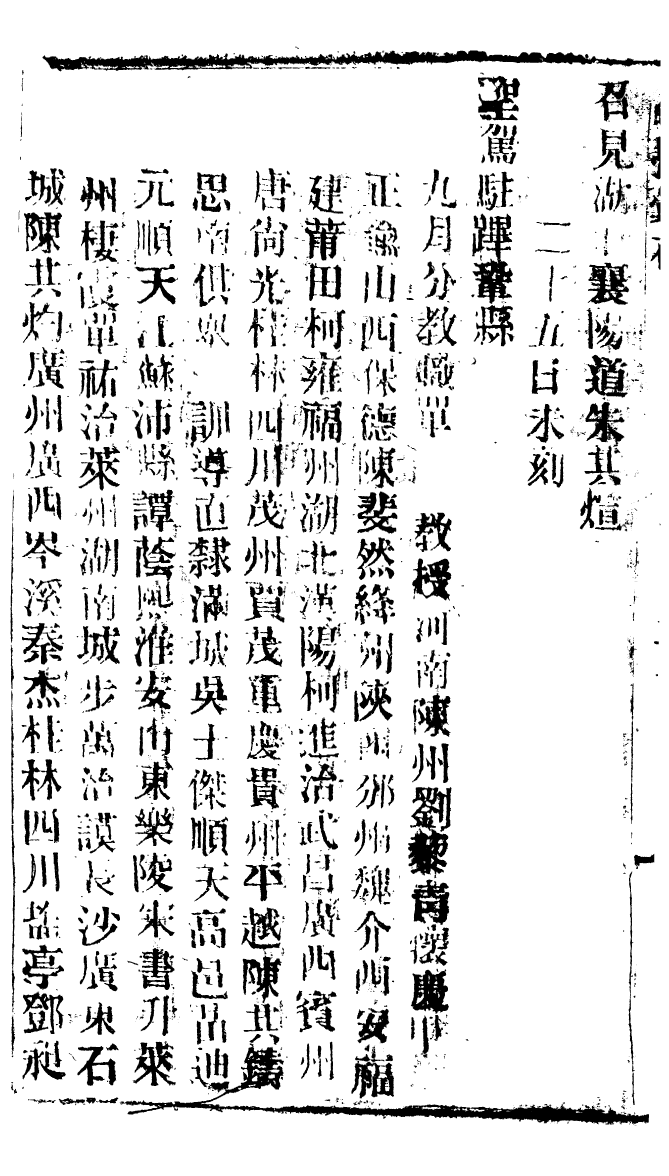 召見湖北襄陽道朱其煊
二十五日未刻
聖駕駐蹕鞏縣
九月分教職單 教授河南陳州劉黎青懷慶甲
正諭山西保德陳斐然絳州陝西邠州魏介西安福
建莆田柯雍福州湖北漢陽柯進治武昌廣西賓州
唐尚光桂林四川茂州買茂重慶貴州平越陳其鑄
思南俱舉 訓導直隸滿城吳士傑順天高邑呂迪
元順天江蘇沛縣譚蔭熙淮安山東樂陵宋書升萊
州棲霞單祐治萊州湖南城步萬治謨長沙廣東石
城陳其灼廣州廣西岑溪秦杰桂林四川鹽亭鄧昶